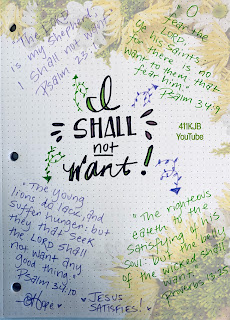 "The Lord
is my shepherd;
I shall not want."
Psalm 23:1
"O
fear the
ye his saints:
for there is no
want to them that
fear him."
Psalm 34:9
I
SHALL
not
Want!
411KJB
YouTube
"The young
lions do lack, and
suffer hunger: but
they that seek
the LORD shall
not want any
good thing."
Psalm 34:10
"The righteous
eateth to the
satisfying of his
soul: but the belly
of the wicked shall
want."
Proverbs 13:25
Hope
JESUS
SATISFIES!